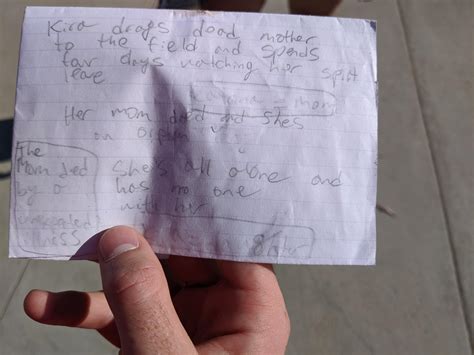 Kira drags dead mother
to the field and spends
four days watching her spirit
leave
= mom
Her mom died and she's
an orphan
The
Mom died
by a
She's all alone and
has no one
with her